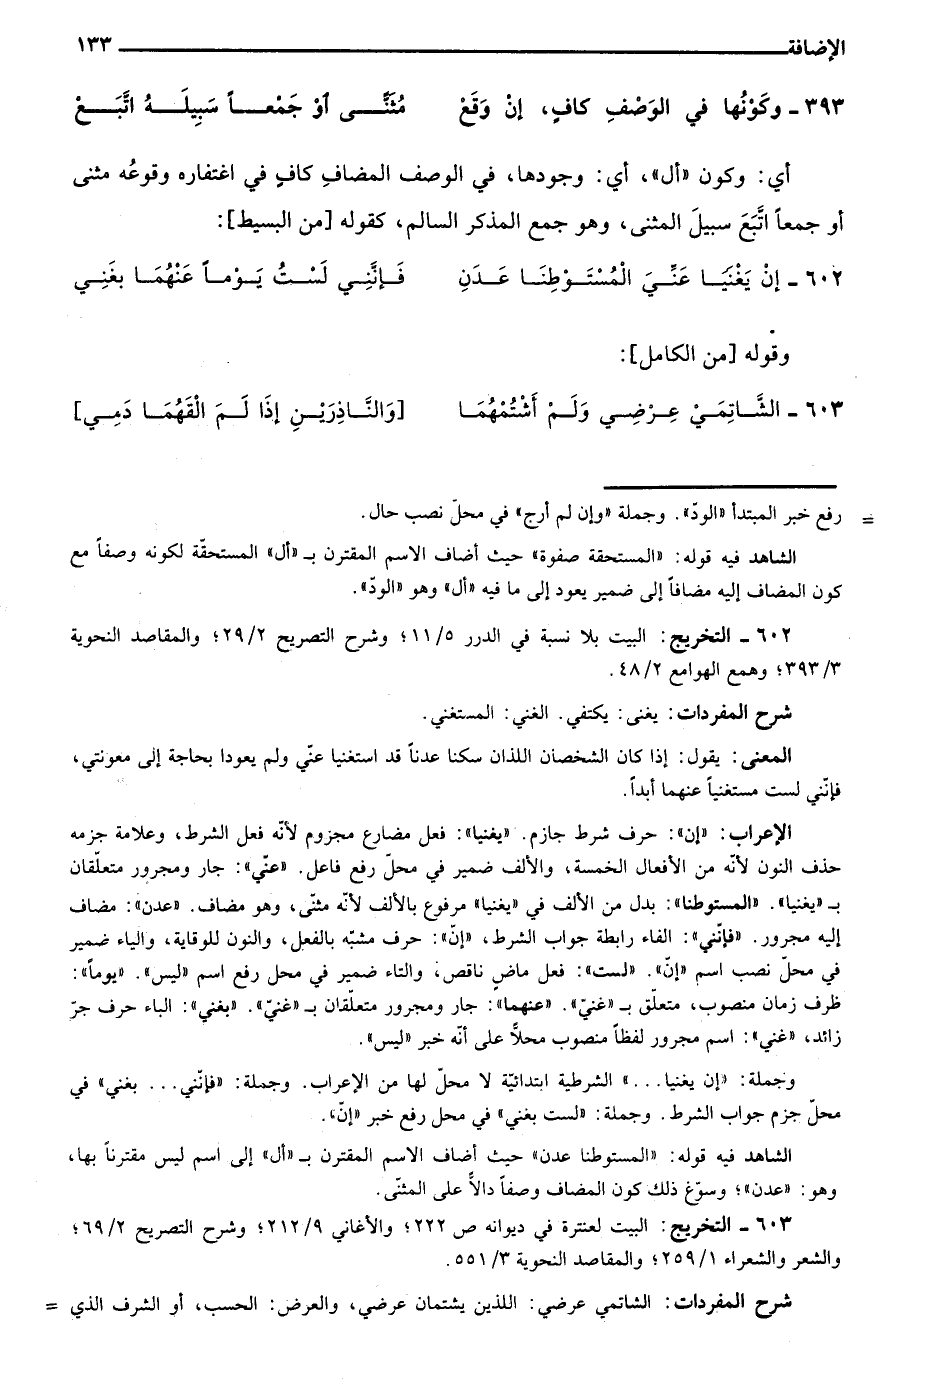 الإضافة ١٣٣
٣٩٣ ـ وكَوْنُها في الوَصْفِ كافٍ، إنْ وَقَعْ مُثَنًّى أوْ جَمْعاً سَبِيلَهُ اتَّبَعْ
أي: وكون «أل»، أي: وجودها، في الوصف المضافِ كافٍ في اغتفاره وقوعُه مثنى
أو جمعاً اتَّبَعَ سبيلَ المثنى، وهو جمع المذكر السالم، كقوله [من البسيط]:
٦٠٢ ـ إنْ يَغْنَيَا عَنِّيَ الْمُسْتَوْطِنَا عَدَنِ فَإنَّنِي لَسْتُ يَوْماً عَنْهُمَا بغَنِي
وقوله [من الكامل]:
٦٠٣ ـ الشَّاتِمَيْ عِرْضِي وَلَمْ أَشْتُمْهُمَا [وَالنَّاذِرَيْنِ إذَا لَمَ الْقَهُمَا دَمِي]
= رفع خبر المبتدأ «الودّ». وجملة «وإن لم أرج» في محلّ نصب حال.
الشاهد فيه قوله: «المستحقة صفوة» حيث أضاف الاسم المقترن بـ «أل» المستحقّة لكونه وصفاً مع
كون المضاف إليه مضافاً إلى ضمير يعود إلى ما فيه «أل» وهو «الودّ».
٦٠٢ ـ التخريج: البيت بلا نسبة في الدرر ١١/٥؛ وشرح التصريح ٢٩/٢؛ والمقاصد النحوية
٣٩٣/٣؛ وهمع الهوامع ٤٨/٢.
شرح المفردات: يغنى: يكتفي. الغني: المستغني.
المعنى: يقول: إذا كان الشخصان اللذان سكنا عدناً قد استغنيا عنّي ولم يعودا بحاجة إلى معونتي،
فإنّني لست مستغنياً عنهما أبداً.
الإعراب: «إن»: حرف شرط جازم. «يغنيا»: فعل مضارع مجزوم لأنّه فعل الشرط، وعلامة جزمه
حذف النون لأنّه من الأفعال الخمسة، والألف ضمير في محلّ رفع فاعل. «عنّي»: جار ومجرور متعلّقان
بـ «يغنيا». «المستوطنا»: بدل من الألف في «يغنيا» مرفوع بالألف لأنّه مثنّى، وهو مضاف. «عدن»: مضاف
إليه مجرور. «فإنّني»: الفاء رابطة جواب الشرط، «إنّ»: حرف مشبّه بالفعل، والنون للوقاية، والياء ضمير
في محلّ نصب اسم «إنّ». «لست»: فعل ماضٍ ناقص، والتاء ضمير في محل رفع اسم «ليس». «يوماً»:
ظرف زمان منصوب، متعلّق بـ «غنيّ». «عنهما»: جار ومجرور متعلّقان بـ «غنيّ». «بغني»: الباء حرف جرّ
زائد، «غني»: اسم مجرور لفظاً منصوب محلاًّ على أنّه خبر «ليس».
وجملة: «إن يغنيا...» الشرطية ابتدائيّة لا محلّ لها من الإعراب. وجملة: «فإنّني... بغني» في
محلّ جزم جواب الشرط. وجملة: «لست بغني» في محل رفع خبر «إنّ».
الشاهد فيه قوله: «المستوطنا عدن» حيث أضاف الاسم المقترن بـ «أل» إلى اسم ليس مقترناً بها،
وهو: «عدن»؛ وسوّغ ذلك كون المضاف وصفاً دالاًّ على المثنّى.
٦٠٣ ـ التخريج: البيت لعنترة في ديوانه ص ٢٢٢؛ والأغاني ٢١٢/٩؛ وشرح التصريح ٦٩/٢؛
والشعر والشعراء ٢٥٩/١؛ والمقاصد النحوية ٥٥١/٣.
شرح المفردات: الشاتمي عرضي: اللذين يشتمان عرضي، والعرض: الحسب، أو الشرف الذي =